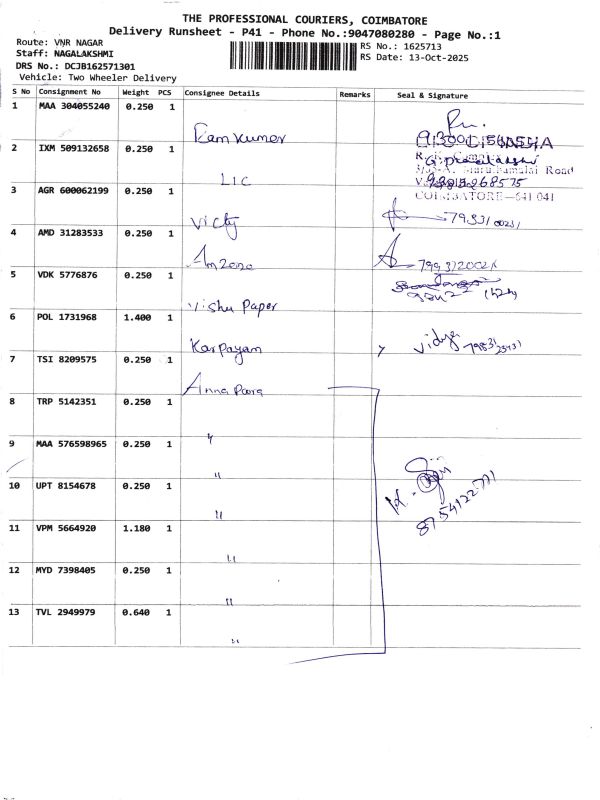 THE PROFESSIONAL COURIERS, COIMBATORE
Delivery Runsheet - P41 - Phone No.:9047080280 - Page No.:1
Route: VNR NAGAR
RS No.: 1625713
Staff: NAGALAKSHMI
RS Date: 13-Oct-2025
DRS No.: DCJB162571301
Vehicle: Two Wheeler Delivery
S No Consignment No Weight PCS Consignee Details Remarks Seal & Signature
1 MAA 304055240 0.250 1
Ramkumar
2 IXM 509132658 0.250 1
LIC
Road
COIMBATORE-641 041
3 AGR 600062199 0.250 1
Vicky
4 AMD 31283533 0.250 1
Amzone
5 VDK 5776876 0.250 1
Vishu Paper
6 POL 1731968 1.400 1
Karpayam
Vidya
7 TSI 8209575 0.250 1
Anna Poorq
8 TRP 5142351 0.250 1
"
9 MAA 576598965 0.250 1
"
10 UPT 8154678 0.250 1
"
8754122771
11 VPM 5664920 1.180 1
"
12 MYD 7398405 0.250 1
"
13 TVL 2949979 0.640 1
"